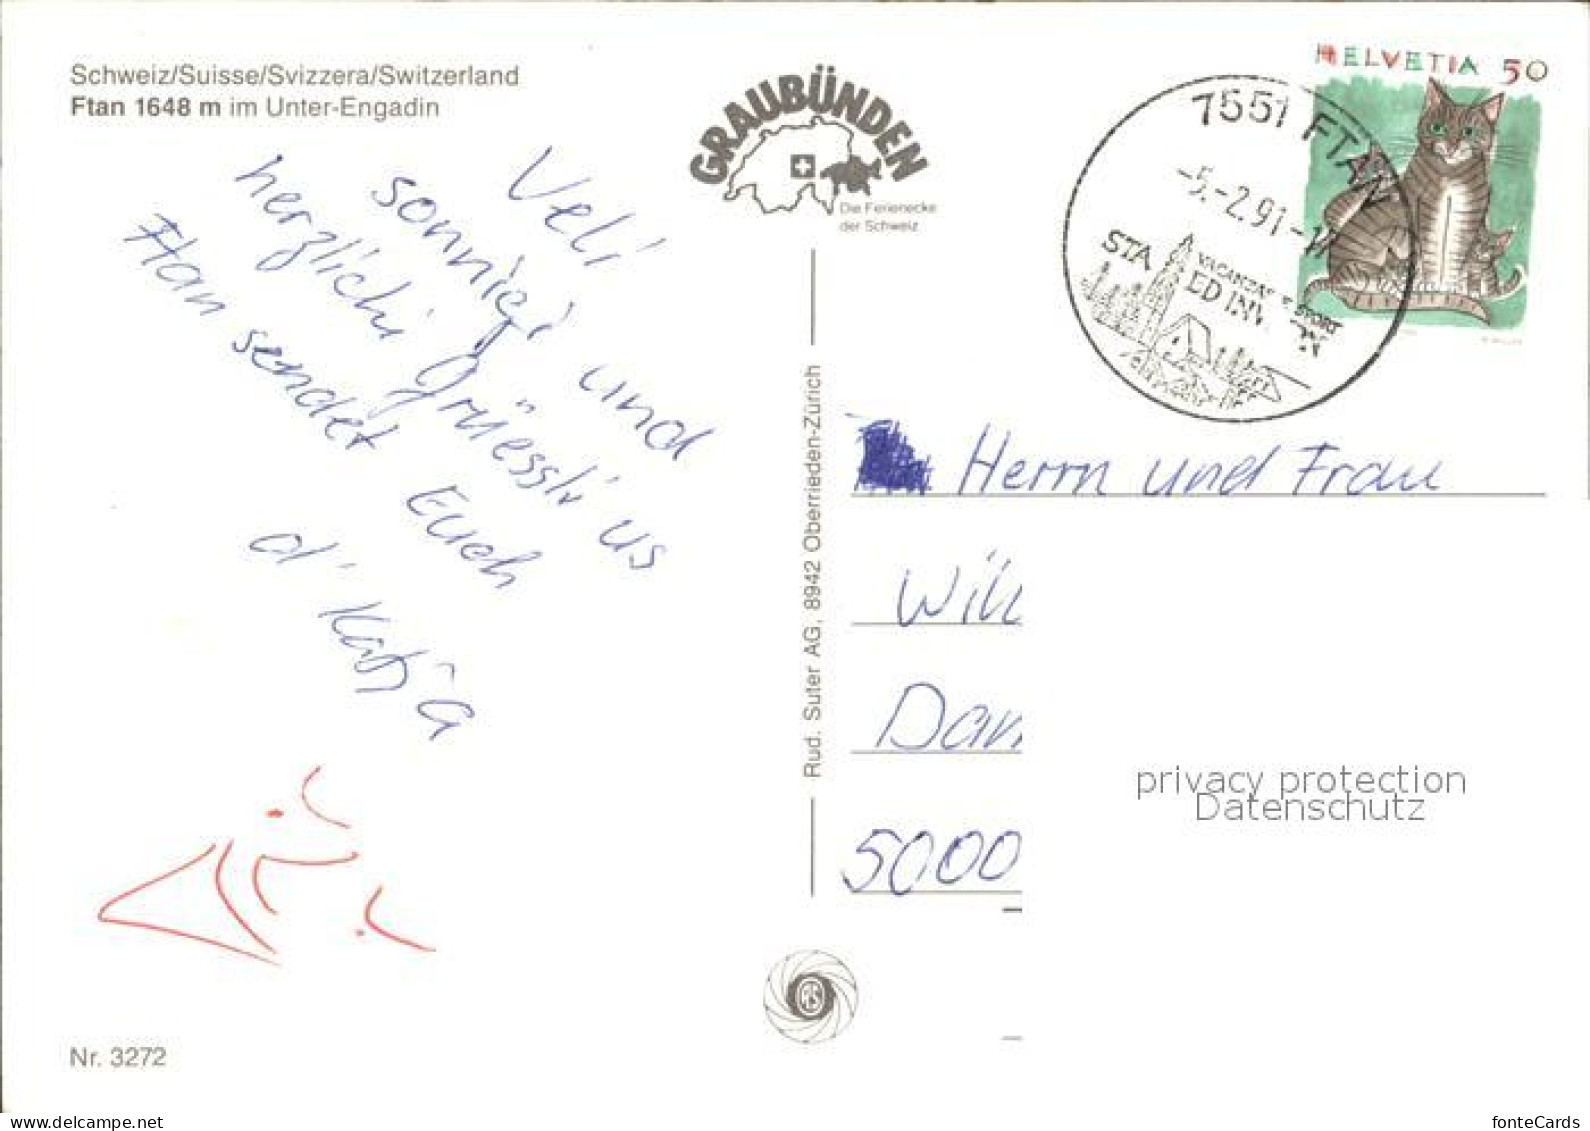 Schweiz/Suisse/Svizzera/Switzerland
Ftan 1648 m im Unter-Engadin
GRAUBÜNDEN
Die Ferienecke
der Schweiz
HELVETIA 50
7551 FTAN
-5.-2.91-11
STA
VACANZAS E SPORT
ED INV
Veli
sonnigi und
herzlichi Grüessli us
Ftan sendet Euch
d' Katja
Rud. Suter AG, 8942 Oberrieden-Zürich
Herrn und Frau
Will
Dam
5000
privacy protection
Datenschutz
Nr. 3272
www.delcampe.net
fonteCards